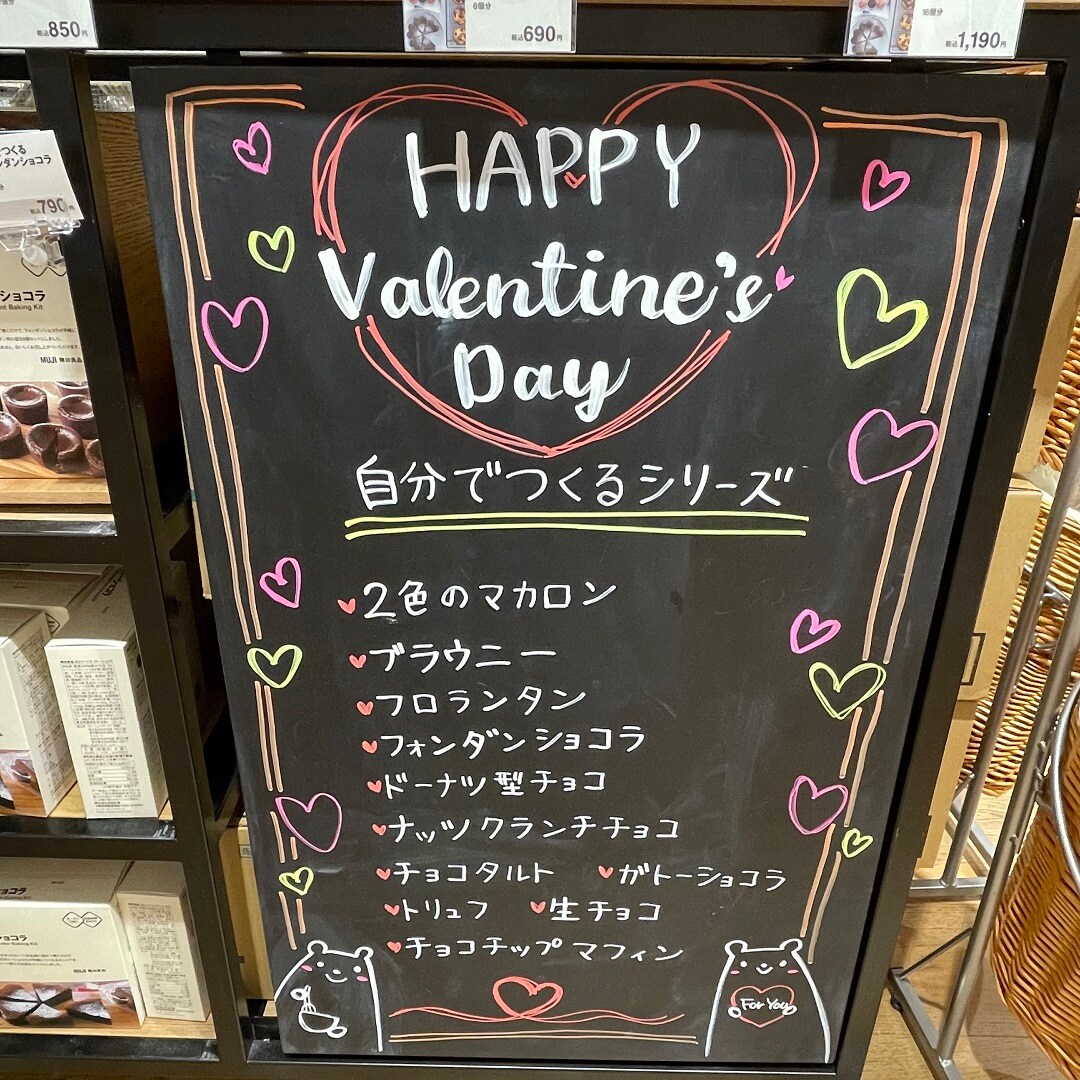 税込850円
6個分
税込690円
16個分
税込1,190円
つくる
ンダンショコラ
税込790円
ショコラ
MUJI 無印良品
HAPPY
Valentine's
Day
自分でつくるシリーズ
2色のマカロン
ブラウニー
フロランタン
フォンダンショコラ
ドーナツ型チョコ
ナッツクランチチョコ
チョコタルト ガトーショコラ
トリュフ 生チョコ
チョコチップマフィン
For You